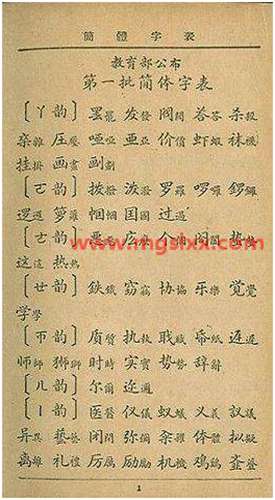 簡體字表
教育部公布
第一批简体字表
〔ㄚ韵〕 罢罷 发發 阀閥 荅答 杀殺
杂雜 压壓 哑啞 亚亞 价價 虾蝦 袜襪
挂掛 画畫 划劃
〔ㄛ韵〕 拨撥 泼潑 罗羅 啰囉 锣鑼
逻邏 箩籮 帼幗 国國 过過
〔ㄜ韵〕 恶惡 个個 阁閣
www.mgslxx.com
这這 热熱
〔ㄝ韵〕 鉄鐵 窃竊 协協 乐樂 觉覺
学學
〔帀韵〕 质質 执執 职職 帋紙 迟遲
师師 狮獅 时時 实實 势勢 辞辭
〔ㄦ韵〕 尔爾 迩邇
〔ㄧ韵〕 医醫 仪儀 蚁蟻 义義 议議
异異 艺藝 闭閉 弥彌 籴糴 体體 拟擬
离離 礼禮 厉厲 励勵 机機 鸡鷄
1